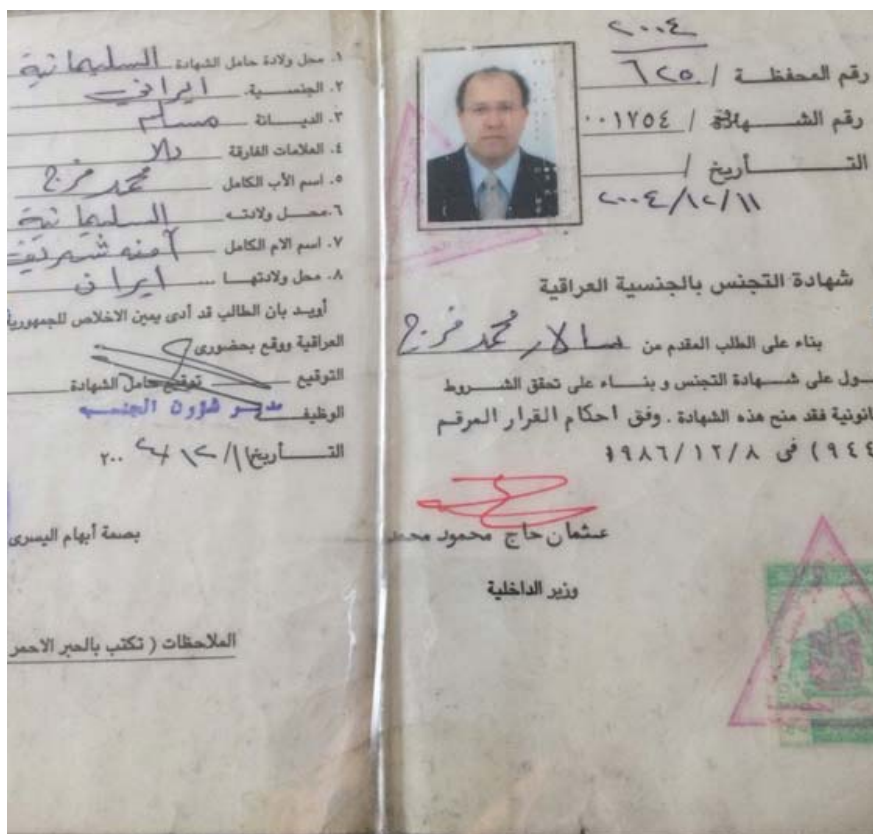 ٢٠٠٤
رقم المحفظة / ٦٢٥
رقم الشهادة / ٠٠١٧٥٤
التأريخ /
٢٠٠٤/١٢/١١
شهادة التجنس بالجنسية العراقية
بناء على الطلب المقدم من سالار محمد فرج
ـول على شهادة التجنس و بناء على تحقق الشروط
ـانونية فقد منح هذه الشهادة . وفق احكام القرار المرقم
٩٤٤) في ١٩٨٦/١٢/٨
عثمان حاج محمود محمد
وزير الداخلية
١. محل ولادة حامل الشهادة السليمانية
٢. الجنسية. ايراني
٣. الديانة مسلم
٤. العلامات الفارقة
٥. اسم الأب الكامل محمد فرج
٦. محل ولادته السليمانية
٧. اسم الام الكامل آمنه شريف
٨. محل ولادتها ... ايران
أويد بان الطالب قد أدى يمين الاخلاص للجمهورية
العراقية ووقع بحضوري
التوقيع توقيع حامل الشهادة
الوظيفة مدير شؤون الجنسيه
التأريخ /١٢/ ٢٠٠
بصمة أبهام اليسرى
الملاحظات ( تكتب بالحبر الاحمر